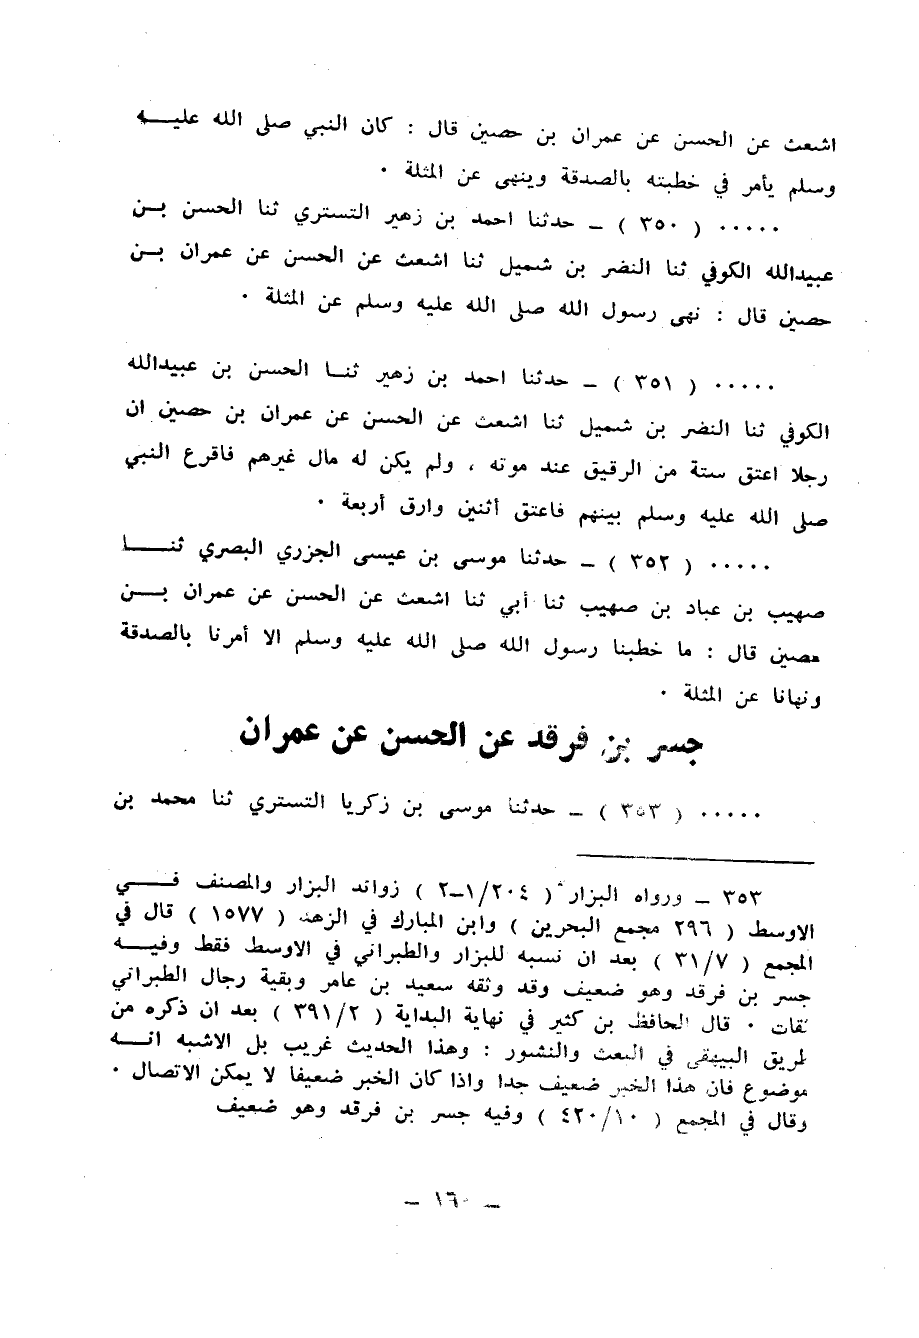 اشعث عن الحسن عن عمران بن حصين قال : كان النبي صلى الله عليه
وسلم يأمر في خطبته بالصدقة وينهى عن المثلة ٠
٠٠٠٠٠ ( ٣٥٠ ) ــ حدثنا احمد بن زهير التستري ثنا الحسن بن
عبيدالله الكوفي ثنا النضر بن شميل ثنا اشعث عن الحسن عن عمران بن
حصين قال : نهى رسول الله صلى الله عليه وسلم عن المثلة ٠
٠٠٠٠٠ ( ٣٥١ ) ــ حدثنا احمد بن زهير ثنا الحسن بن عبيدالله
الكوفي ثنا النضر بن شميل ثنا اشعث عن الحسن عن عمران بن حصين ان
رجلا اعتق ستة من الرقيق عند موته ، ولم يكن له مال غيرهم فاقرع النبي
صلى الله عليه وسلم بينهم فاعتق أثنين وارق أربعة ٠
٠٠٠٠٠ ( ٣٥٢ ) ــ حدثنا موسى بن عيسى الجزري البصري ثنا
صهيب بن عباد بن صهيب ثنا أبي ثنا اشعث عن الحسن عن عمران بن
حصين قال : ما خطبنا رسول الله صلى الله عليه وسلم الا أمرنا بالصدقة
ونهانا عن المثلة ٠
جسر بن فرقد عن الحسن عن عمران
٠٠٠٠٠ ( ٣٥٣ ) ــ حدثنا موسى بن زكريا التستري ثنا محمد بن
٣٥٣ ــ ورواه البزار ( ٢٠٤/١ــ٢ ) زوائد البزار والمصنف في
الاوسط ( ٢٩٦ مجمع البحرين ) وابن المبارك في الزهد ( ١٥٧٧ ) قال في
المجمع ( ٣١/٧ ) بعد ان نسبه للبزار والطبراني في الاوسط فقط وفيه
جسر بن فرقد وهو ضعيف وقد وثقه سعيد بن عامر وبقية رجال الطبراني
ثقات ٠ قال الحافظ بن كثير في نهاية البداية ( ٣٩١/٢ ) بعد ان ذكره من
طريق البيهقي في البعث والنشور : وهذا الحديث غريب بل الاشبه انه
موضوع فان هذا الخبر ضعيف جدا واذا كان الخبر ضعيفا لا يمكن الاتصال ٠
وقال في المجمع ( ٤٢٠/١٠ ) وفيه جسر بن فرقد وهو ضعيف
ــ ١٦٠ ــ